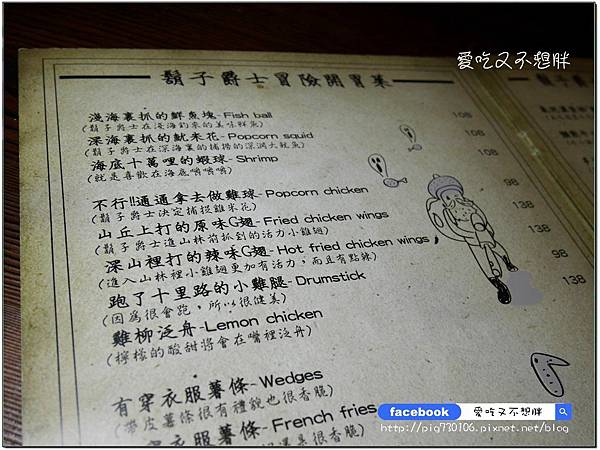 愛吃又不想胖
鬍子爵士冒險開胃菜
淺海裏抓的鮮魚塊-Fish ball 108
(鬍子爵士在淺海釣來的美味鮮魚)
深海裏抓的魷米花-Popcorn squid 108
(鬍子爵士在深海裏的捕撈的深洞大魷魚)
海底十萬哩的蝦球-Shrimp
(就是喜歡在海底啃啃啃)
不行!!通通拿去做雞球-Popcorn chicken 98
(鬍子爵士決定捕捉雞米花)
山丘上打的原味G翅-Fried chicken wings 138
(鬍子爵士進山林前抓到的活力小雞翅)
深山裡打的辣味G翅-Hot fried chicken wings
(進入山林裡小雞翅更加有活力,而且有點辣)
跑了十里路的小雞腿-Drumstick 138
(因為很會跑,所以很健美)
雞柳泛舟-Lemon chicken
(檸檬的酸甜將會在嘴裡泛舟)
有穿衣服薯條-Wedges
(帶皮薯條很有禮貌也很香脆)
衣服薯條-French fries
很香脆)
facebook 愛吃又不想胖
http://pig730106.pixnet.net/blog